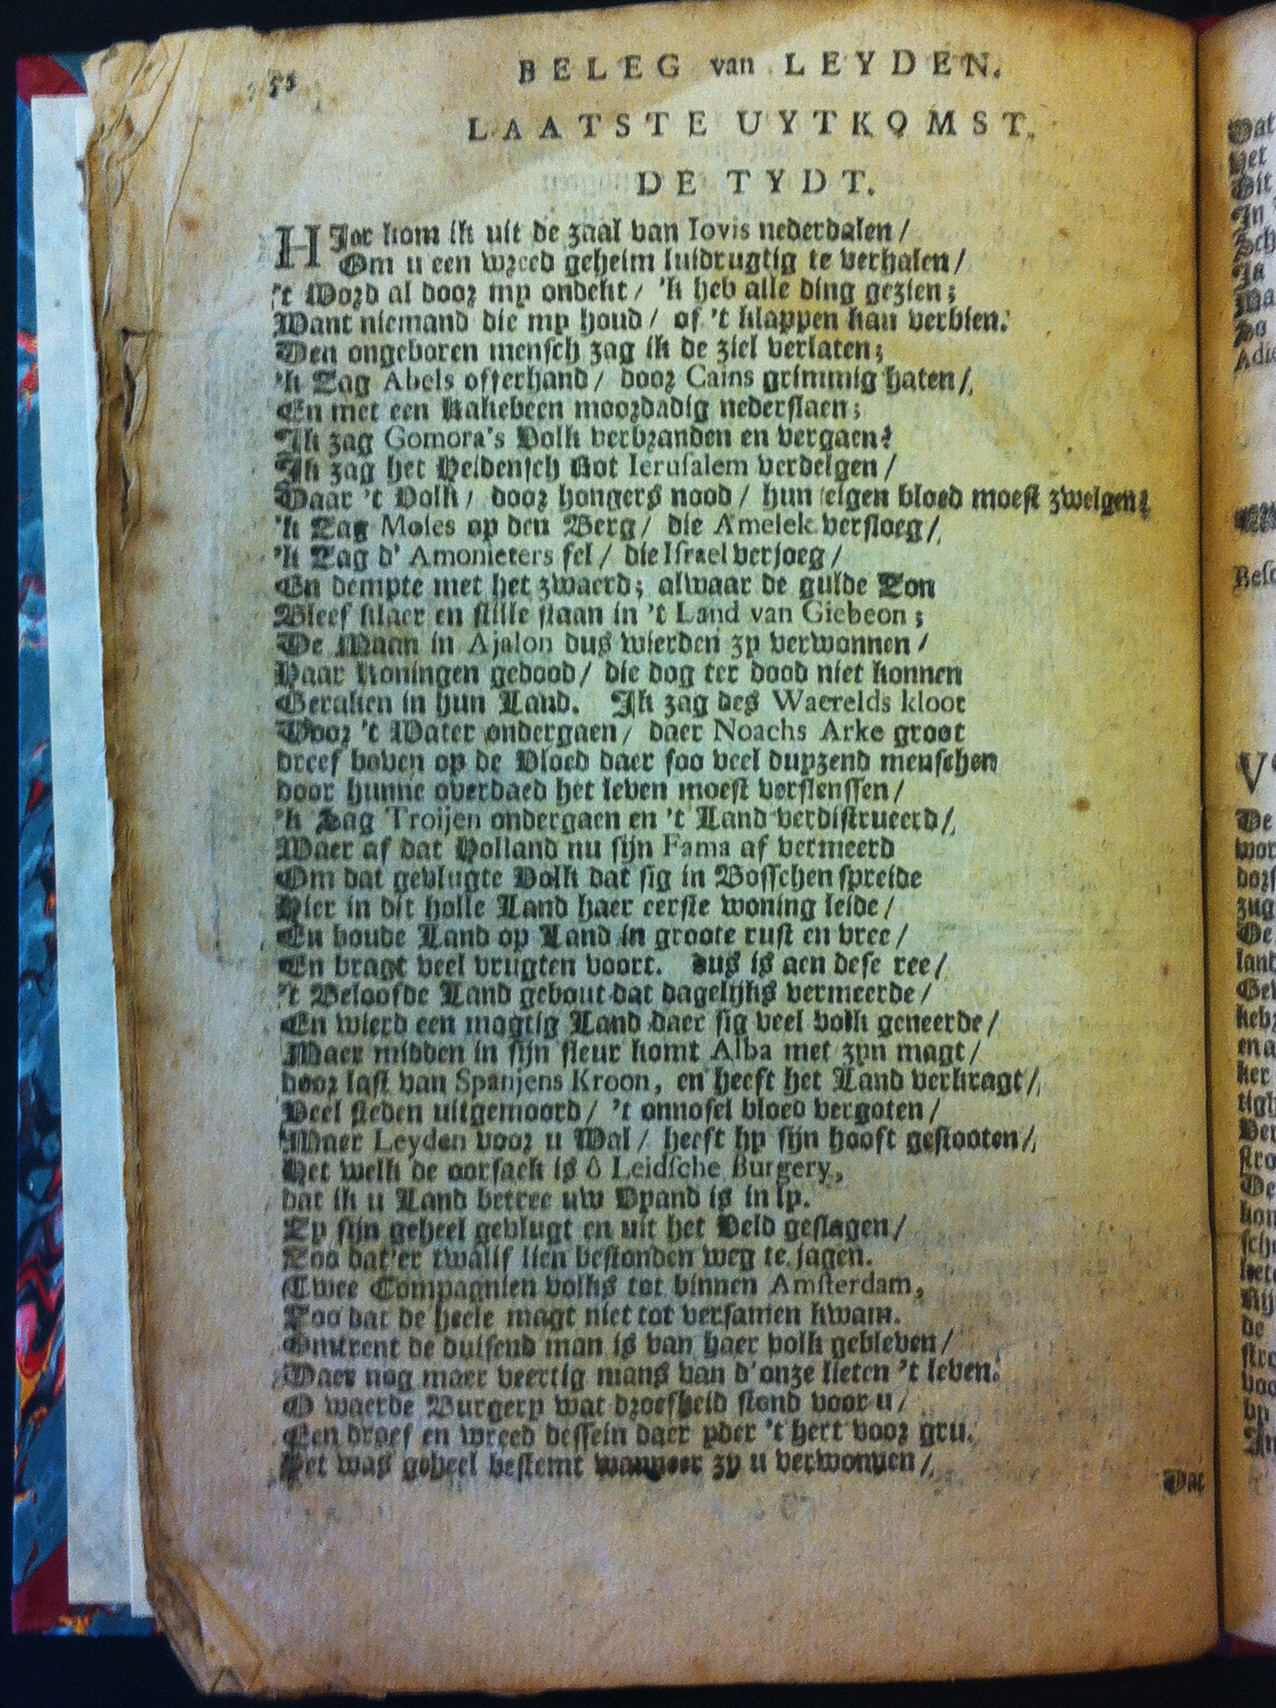 58
BELEG van LEYDEN.
LAATSTE UYTKOMST.
DE TYDT.
HIer kom ik uit de zaal van Iovis nederdalen /
Om u een wreed geheim luidrugtig te verhalen /
't Word al door my ondekt / 'k heb alle ding gezien;
Want niemand die my houd / of 't klappen kan verbien.
Den ongeboren mensch zag ik de ziel verlaten;
'k Zag Abels offerhand / door Cains grimmig haten /
En met een Kakebeen moordadig nederslaen;
Ik zag Gomora's Volk verbranden en vergaen:
Ik zag het Heidensch Rot Ierusalem verdelgen /
Daar 't Volk / door hongers nood / hun eigen bloed moest zwelgen:
'k Zag Moses op den Berg / die Amelek versloeg /
'k Zag d' Amonieters fel / die Israel verjoeg /
En dempte met het zwaerd; alwaar de gulde Zon
Bleef klaer en stille staan in 't Land van Giebeon;
De Maan in Ajalon dus wierden zy verwonnen /
Haar Koningen gedood / die dog ter dood niet konnen
Geraken in hun Land. Ik zag des Waerelds kloot
Door 't Water ondergaen / daer Noachs Arke groot
dreef boven op de Vloed daer soo veel duyzend menschen
door hunne overdaed het leven moest verslenssen /
'k Zag Troijen ondergaen en 't Land verdistrueerd /
Waer af dat Holland nu sijn Fama af vermeerd
Om dat gevlugte Volk dat sig in Bosschen spreide
Hier in dit holle Land haer eerste woning leide /
En boude Land op Land in groote rust en vree /
En bragt veel vrugten voort. dus is aen dese ree /
't Beloofde Land gebout dat dagelijks vermeerde /
En wierd een magtig Land daer sig veel volk geneerde /
Maer midden in sijn fleur komt Alba met zyn magt /
door last van Spanjens Kroon, en heeft het Land verkragt /
Veel steden uitgemoord / 't onnosel bloed vergoten /
Maer Leyden voor u Wal / heeft hy sijn hooft gestooten /
Het welk de oorsack is ô Leidsche Burgery,
dat ik u Land betree uw Vyand is in ly.
Zy sijn geheel gevlugt en uit het Veld geslagen /
Zoo dat'er twalif lien bestonden weg te jagen.
Twee Compagnien volks tot binnen Amsterdam,
Zoo dat de heele magt niet tot versamen kwam.
Omtrent de duisend man is van haer volk gebleven /
Daer nog maer veertig mans van d'onze lieten 't leven:
O waerde Burgery wat droefheid stond voor u /
Een droef en wreed dessein daer yder 't hert voor gru.
Het was geheel bestemt wanneer zy u verwonnen /
Dat